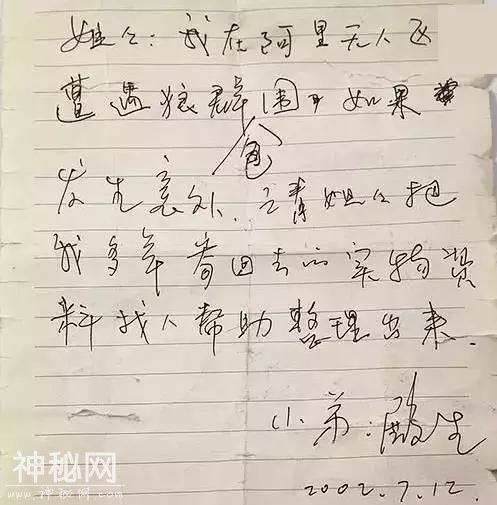 姐姐：我在阿里无人区
遭遇狼群包围，如果
发生意外，请姐姐把
我多年寄回去的实物资
料找人帮助整理出来.
小弟：殿生
2002.7.12.
神秘网
www.shenmiw.com